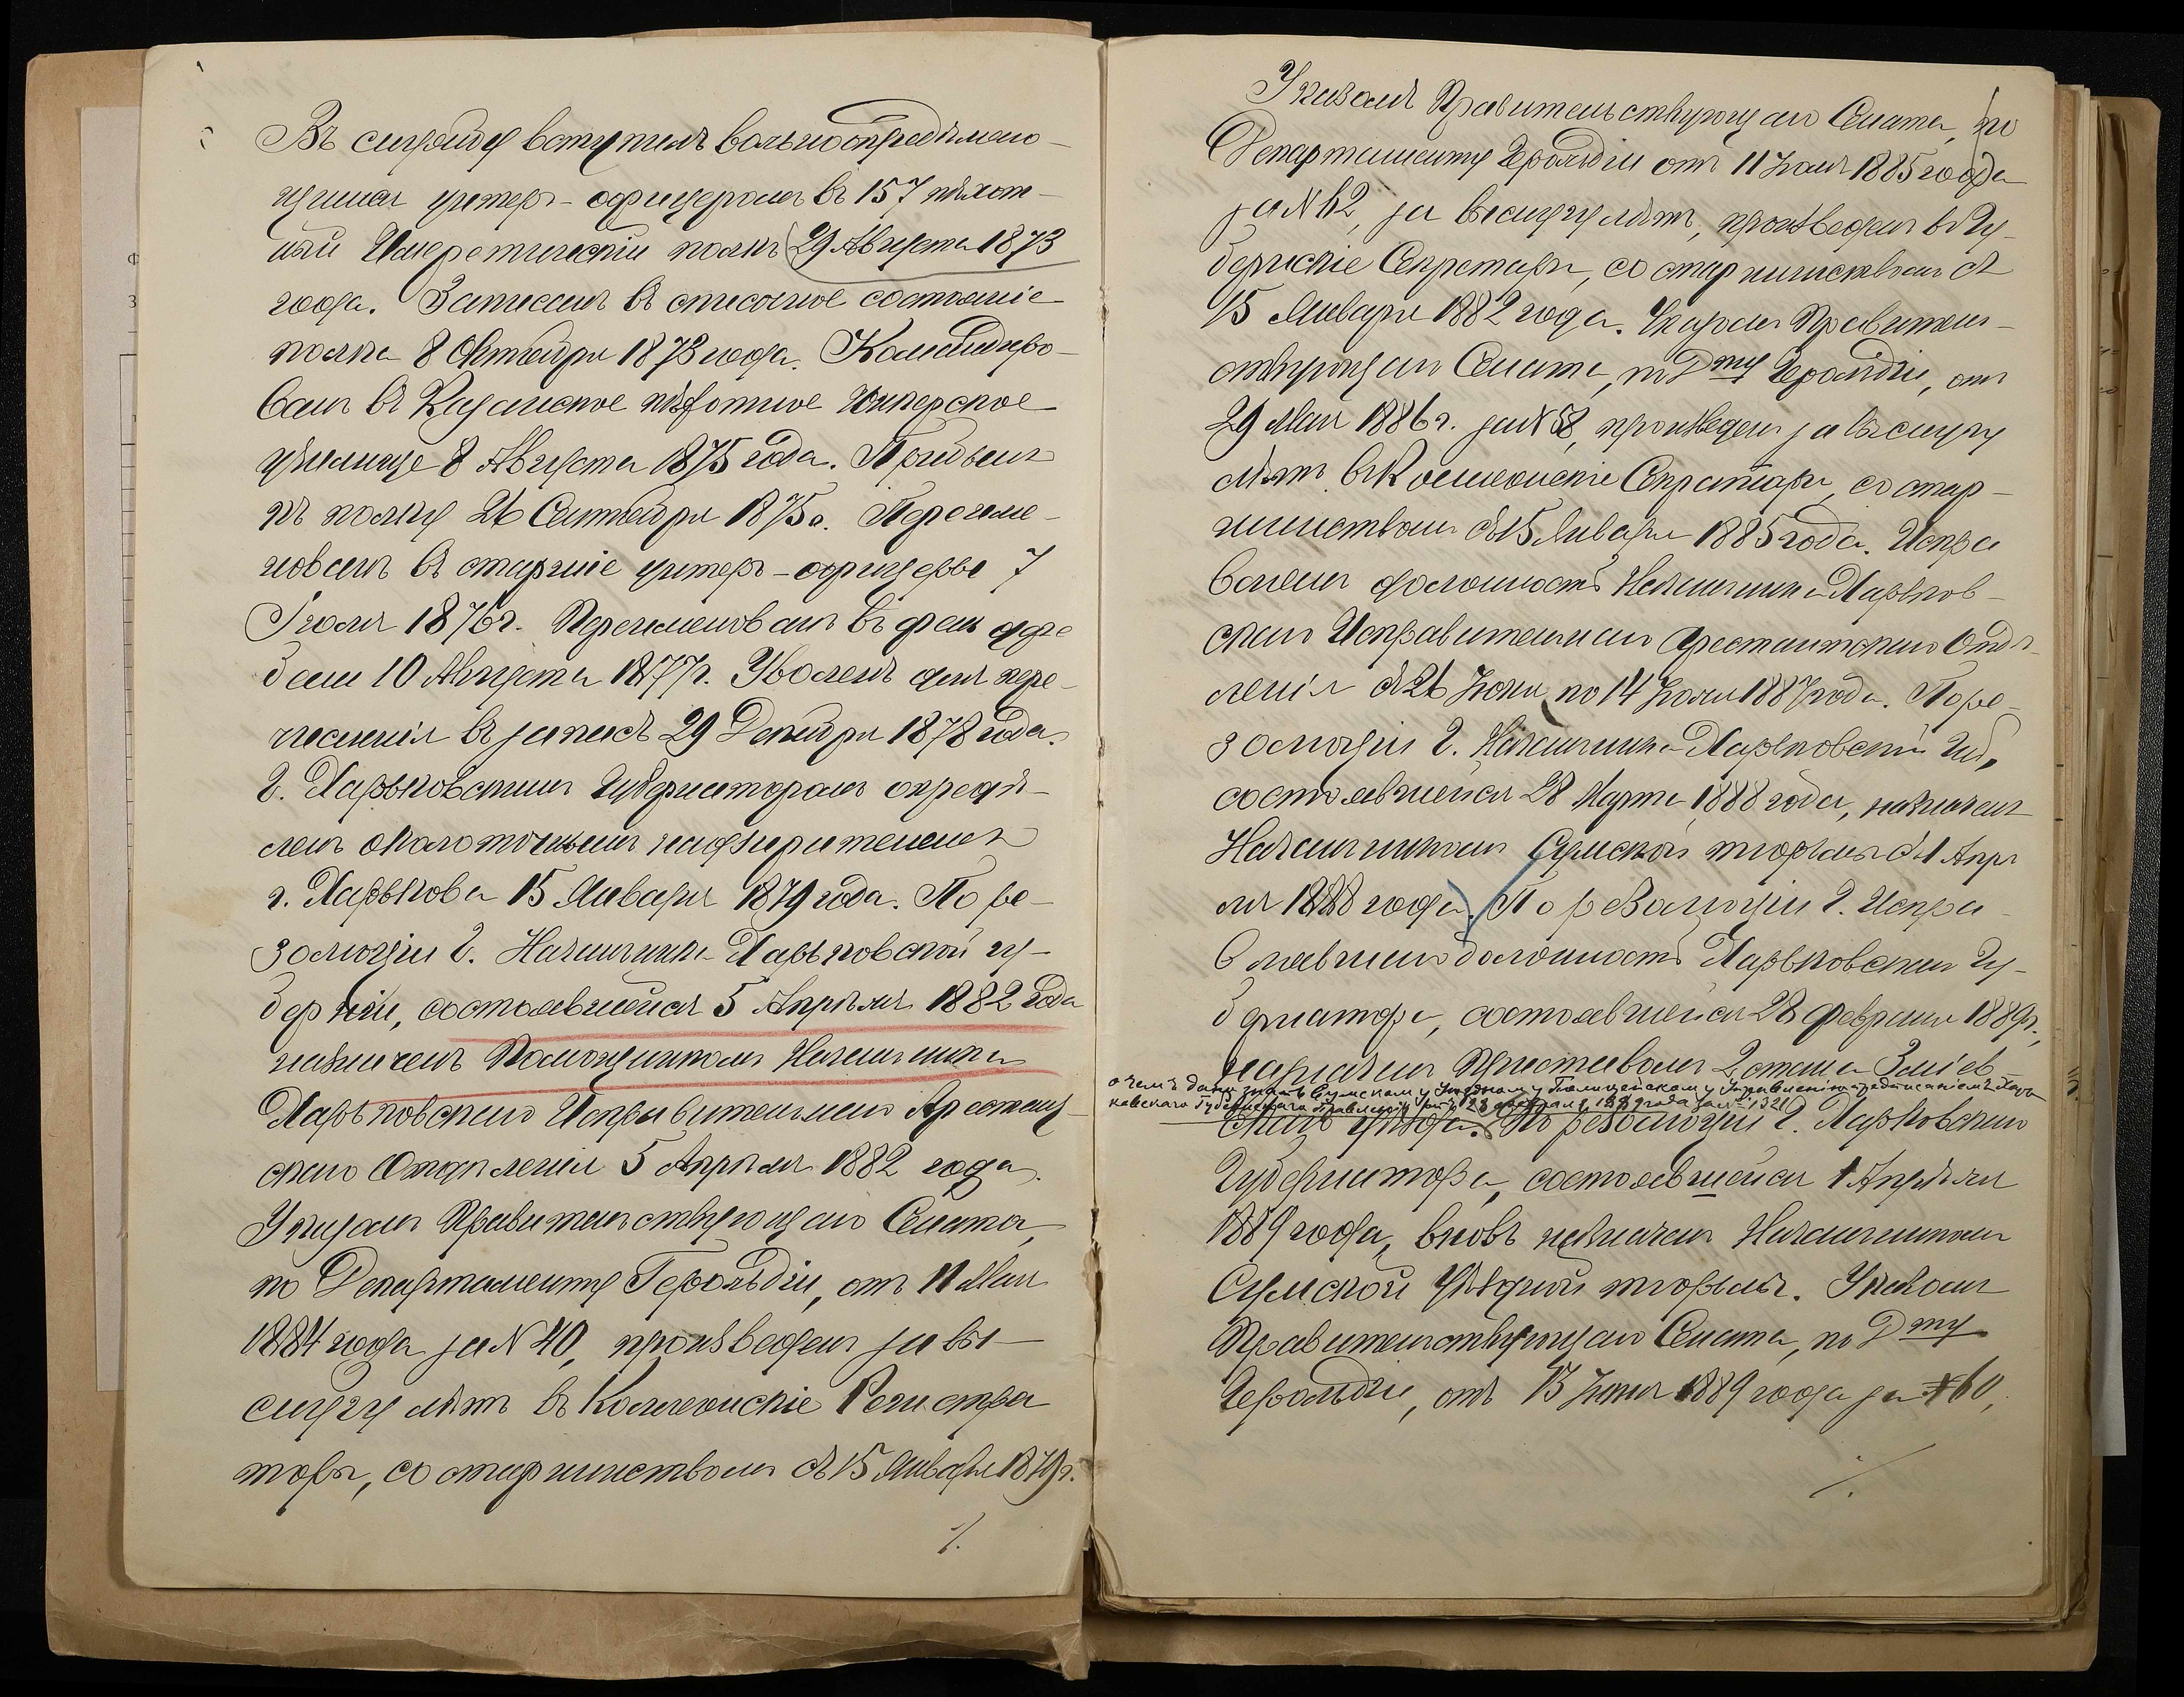 Въ службу вступилъ вольноопредѣляю-
щимся унтеръ-офицеромъ въ 157 пѣхот-
ный Имеретинскій полкъ 29 Августа 1873
года. Записанъ въ списочное состояніе
полка 8 Октября 1873 года. Командиро-
ванъ въ Казанское пѣхотное Юнкерское
училище 8 Августа 1875 года. Прибылъ
къ полку 26 Сентября 1875 г. Переиме-
нованъ въ старшіе унтеръ-офицеры 7
Іюля 1876 г. Переименованъ въ фельдфе
бели 10 Августа 1877 г. Уволенъ для пере-
численія въ запасъ 29 Декабря 1878 года.
Г. Харьковскимъ Губернаторомъ опредѣ-
ленъ околоточнымъ надзирателемъ
г. Харькова 15 Января 1879 года. По ре-
золюціи Г. Начальника Харьковской гу-
берніи, состоявшейся 5 Апрѣля 1882 года
назначенъ Помощникомъ Начальника
Харьковскаго Исправительнаго Арестант-
скаго Отдѣленія 5 Апрѣля 1882 года.
Указомъ Правительствующаго Сената,
по Департаменту Герольдіи, отъ 11 Мая
1884 года за № 40, произведенъ за вы-
слугу лѣтъ въ Коллежскіе Регистра
торы, со старшинствомъ съ 15 Января 1879 г.
Указомъ Правительствующаго Сената, по
Департаменту Герольдіи отъ 11 Іюля 1885 года
за № 62, за выслугу лѣтъ, произведенъ въ Гу-
бернскіе Секретари, со старшинствомъ съ
15 Января 1882 года. Указомъ Правитель-
ствующаго Сената, по Дту Герольдіи, отъ
29 Мая 1886 г. за № 58, произведенъ за выслугу
лѣтъ въ Коллежскіе Секретари, со стар-
шинствомъ съ 15 Января 1885 года. Испра
влялъ должность Начальника Харьков-
скаго Исправительнаго Арестантскаго Отдѣ-
ленія съ 26 Іюня по 14 Іюля 1887 года. По ре-
золюціи Г. Начальника Харьковской Губ.,
состоявшейся 28 Марта 1888 года, назначенъ
Начальникомъ Сумской тюрьмы съ 1 Апрѣ
ля 1888 года. По резолюціи Г. Испра-
влявшаго должность Харьковскаго Гу-
бернатора, состоявшейся 28 Февраля 1889 г.,
назначенъ Приставомъ 2 стана Зміев-
о чемъ дано знать Сумскому Уѣздному Полицейскому Управленію предписаніемъ Харь
ковскаго Губернскаго Правленія отъ 28 февраля 1889 года за № 1321
скаго уѣзда. По резолюціи Г. Харьковскаго
Губернатора, состоявшейся 1 Апрѣля
1889 года, вновь назначенъ Начальникомъ
Сумской уѣздной тюрьмы. Указомъ
Правительствующаго Сената, по Дту
Герольдіи, отъ 13 Іюня 1889 года за № 60,